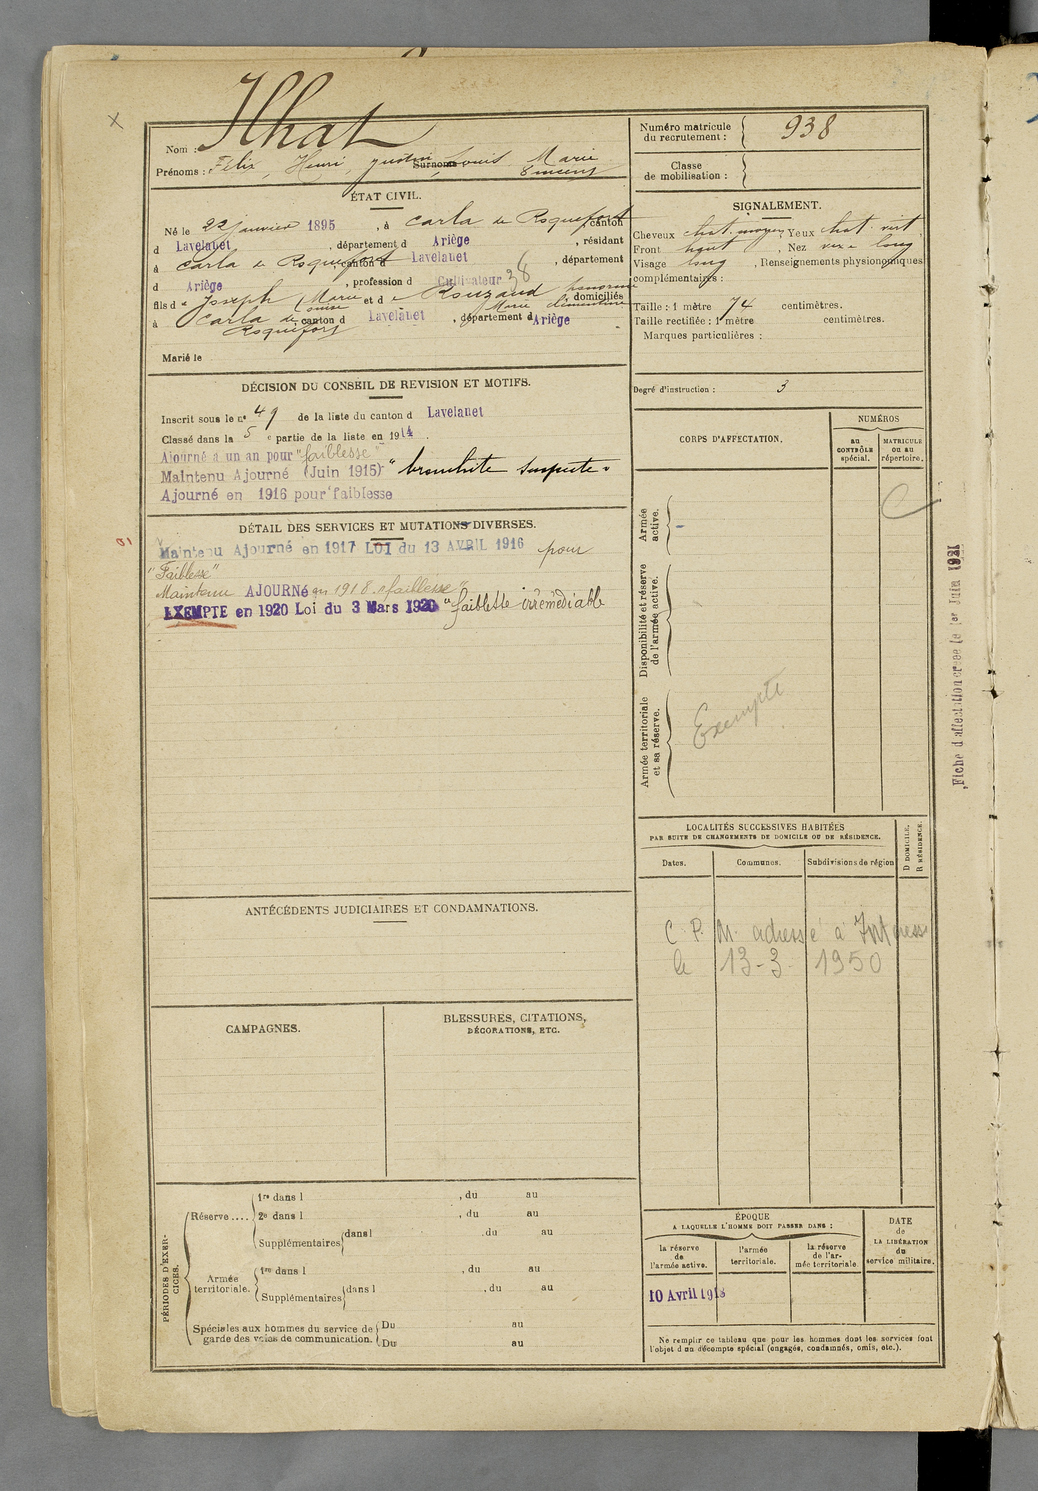 Nom : Ilhat
Prénoms : Félix, Henri, Justin, Surnoms Louis Marie
Vincent
ÉTAT CIVIL.
Né le 22 janvier 1895, à Carla de Roquefort, canton
d Lavelanet, département d Ariège, résidant
à Carla de Roquefort, canton d Lavelanet, département
d Ariège, profession d Cultivateur 38
fils d e Joseph (Marie Louise et d e Rouzaud honorine Marie clémentine domiciliés
à Carla de Roquefort, canton d Lavelanet, département d Ariège
Marié le
DÉCISION DU CONSEIL DE REVISION ET MOTIFS.
Inscrit sous le n° 49 de la liste du canton d Lavelanet
Classé dans la 5 e partie de la liste en 1914.
Ajourné à un an pour "faiblesse"
Maintenu Ajourné (Juin 1915) "bronchite suspecte"
Ajourné en 1916 pour faiblesse
DÉTAIL DES SERVICES ET MUTATIONS DIVERSES.
21
Maintenu Ajourné en 1917 LOI du 13 AVRIL 1916 pour
"Faiblesse"
Maintenu AJOURNé en 1918 "faiblesse"
EXEMPTE en 1920 Loi du 3 Mars 1920 "faiblesse irrémédiable
ANTÉCÉDENTS JUDICIAIRES ET CONDAMNATIONS.
CAMPAGNES.
BLESSURES, CITATIONS,
DÉCORATIONS, ETC.
PÉRIODES D'EXERCICES.
Réserve....
1re dans l , du au
2e dans l , du au
Supplémentaires dans l , du au
Armée territoriale.
1re dans l , du au
Supplémentaires dans l , du au
Spéciales aux hommes du service de garde des voies de communication.
Du au
Du au
Numéro matricule
du recrutement : 938
Classe
de mobilisation :
SIGNALEMENT.
Cheveux chat. moyen, Yeux chat. vert,
Front haut, Nez long
Visage long, Renseignements physionomiques
complémentaires :
Taille : 1 mètre 74 centimètres.
Taille rectifiée : 1 mètre centimètres.
Marques particulières :
Degré d'instruction : 3
CORPS D'AFFECTATION.
NUMÉROS
au CONTRÔLE spécial.
MATRICULE ou au répertoire.
C
Armée active.
Disponibilité et réserve de l'armée active.
Armée territoriale et sa réserve.
Exempté
Fiche d'affectation créée le 1er Juin 1921
LOCALITÉS SUCCESSIVES HABITÉES
PAR SUITE DE CHANGEMENTS DE DOMICILE OU DE RÉSIDENCE.
Dates.
Communes.
Subdivisions de région
D DOMICILE.
R RÉSIDENCE.
C. P. M. adressé à
le 13-3 1950
ÉPOQUE
A LAQUELLE L'HOMME DOIT PASSER DANS :
DATE
de
LA LIBÉRATION
du
service militaire.
la réserve de l'armée active.
l'armée territoriale.
la réserve de l'armée territoriale.
10 Avril 1918
Ne remplir ce tableau que pour les hommes dont les services font
l'objet d'un décompte spécial (engagés, condamnés, omis, etc.).